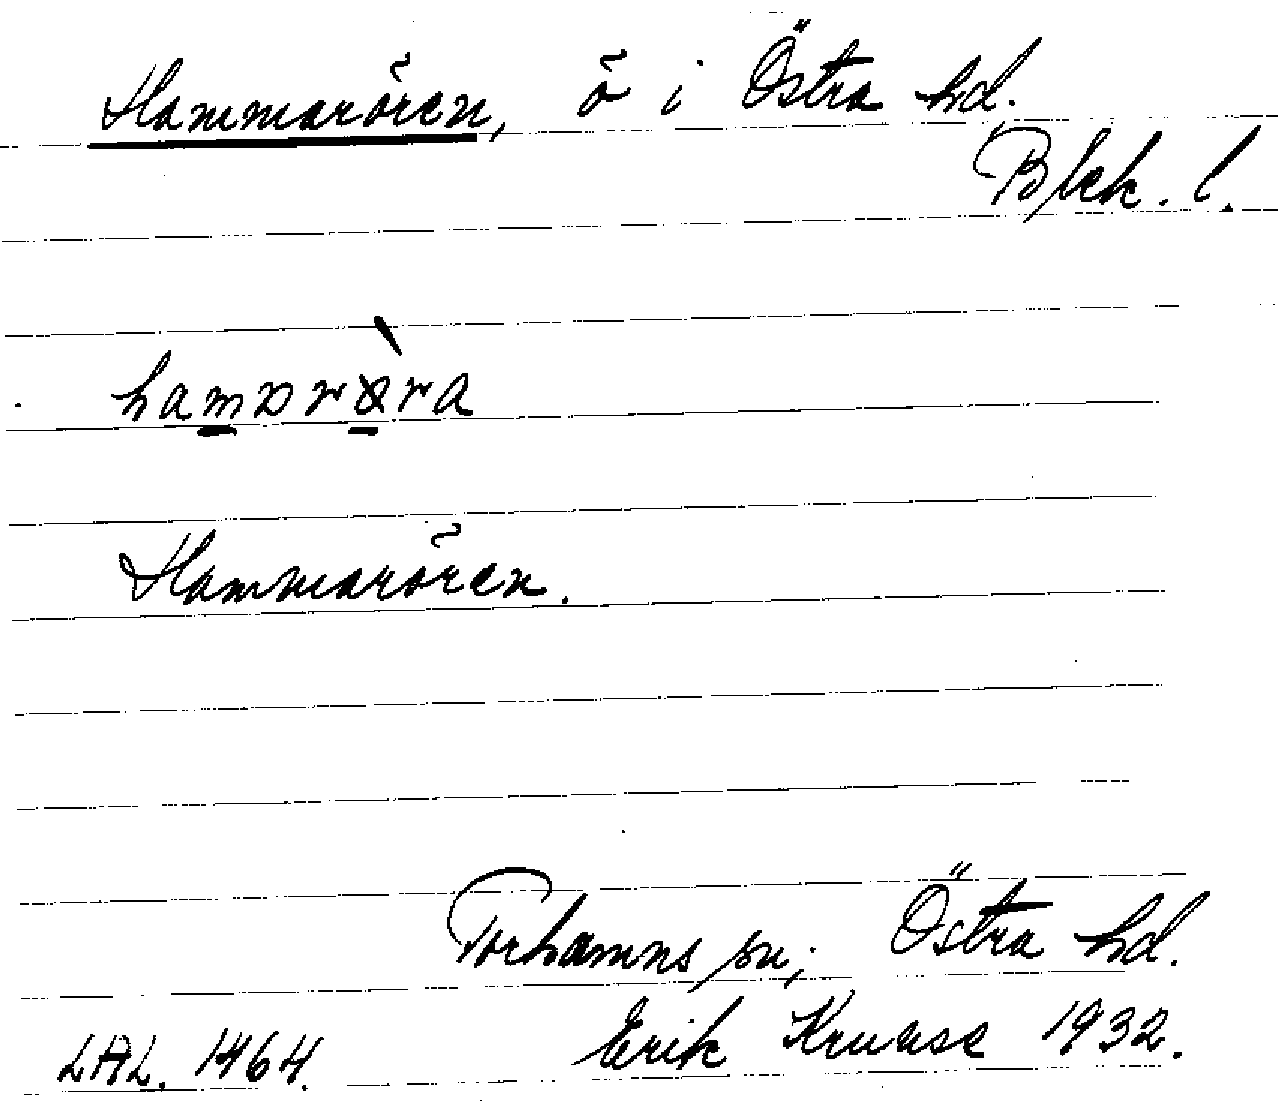 Hammarören, ö i Östra hd.
Blek. l.
Hammarören.
Torhamns sn; Östra hd.
LAL. 1464. Erik Kruuse 1932.